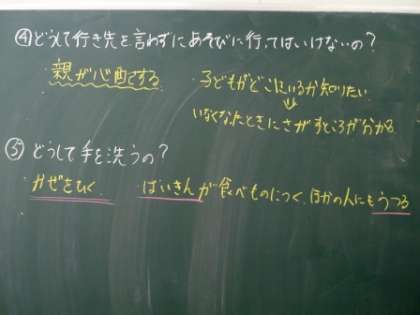 ④どうして行き先を言わずにあそびに行ってはいけないの?
・親が心配する ・子どもがどこにいるか知りたい
↓
いなくなったときにさがすところがわかる
⑤どうして手を洗うの?
・かぜをひく ・ばいきんが食べものにつく、ほかの人にもうつる